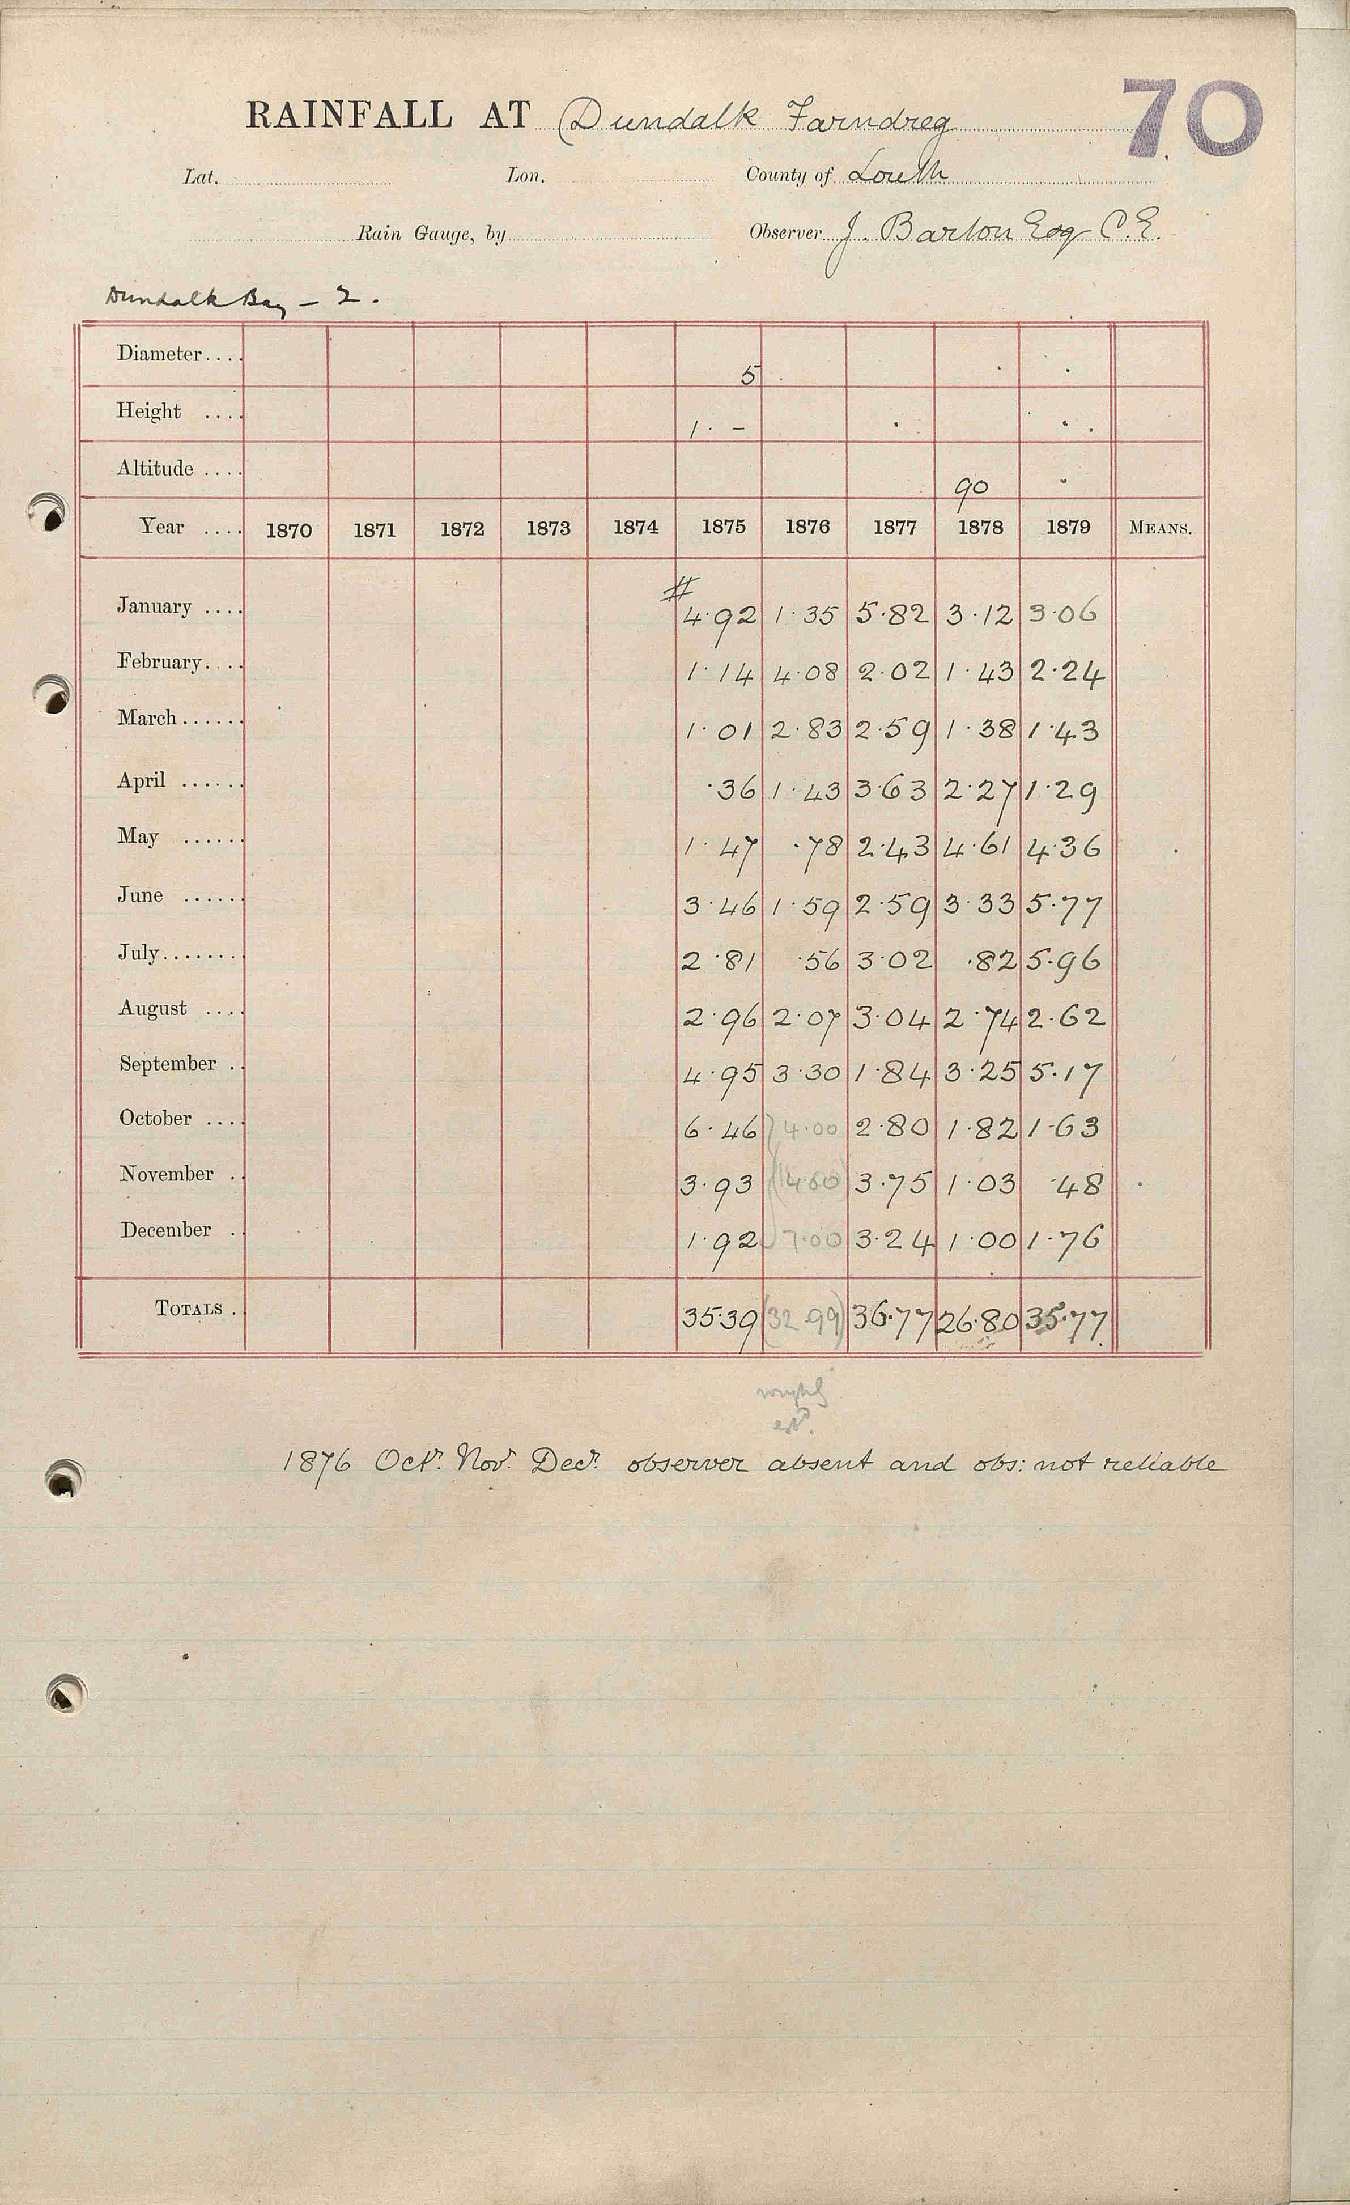 RAINFALL AT Dundalk Farndreg 70
Lat. Lon. County of Louth
Rain Gauge, by Observer J. Barton Esq C.E.
Dundalk Bay - 2.
Diameter.... 5
Height .... 1. -
Altitude .... 90
Year .... 1870 1871 1872 1873 1874 1875 1876 1877 1878 1879 MEANS.
#
January .... 4.92 1.35 5.82 3.12 3.06
February.... 1.14 4.08 2.02 1.43 2.24
March...... 1.01 2.83 2.59 1.38 1.43
April ...... .36 1.43 3.63 2.27 1.29
May ...... 1.47 .78 2.43 4.61 4.36
June ...... 3.46 1.59 2.59 3.33 5.77
July........ 2.81 .56 3.02 .82 5.96
August .... 2.96 2.07 3.04 2.74 2.62
September .. 4.95 3.30 1.84 3.25 5.17
October .... 6.46 4.00 2.80 1.82 1.63
November .. 3.93 3.75 1.03 .48
December .. 1.92 7.00 3.24 1.00 1.76
TOTALS . 35.39 (32.99) 36.77 26.80 35.77
est^d.
1876 Oct^r. Nov^r. Dec^r. observer absent and obs: not reliable